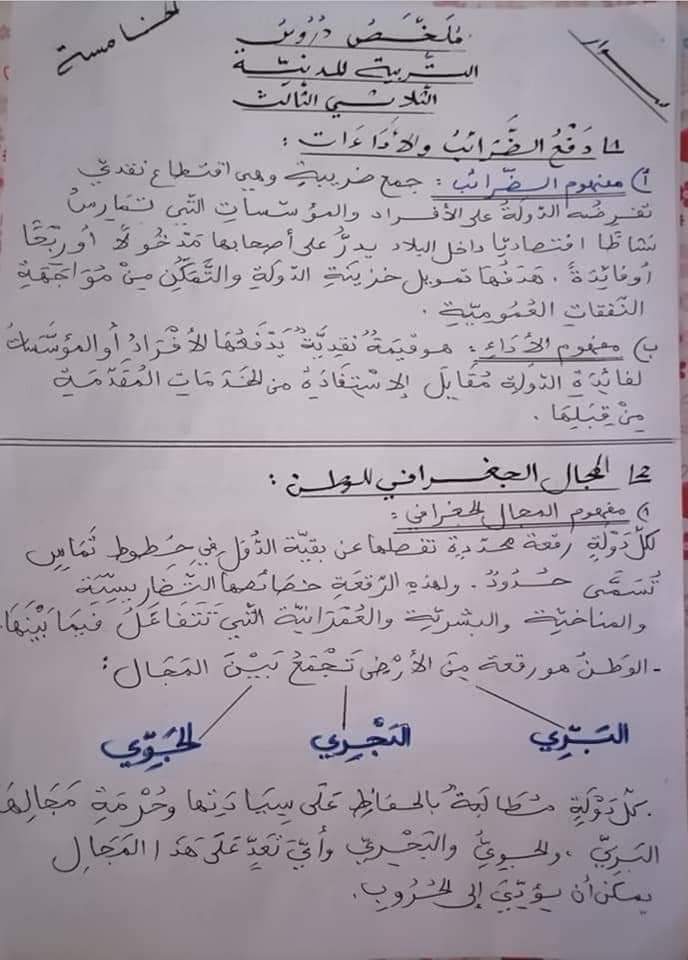 الخامسة
مُلَخَّصُ دُرُوسُ
التّربية المدنيّة
الثلاثي الثالث
1/ دَفْعُ الضَّرَائِبُ والأَدَاءَات :
أ) مفهوم الضَّرائب : جمع ضريبةٍ وهي اقتطاع نقدي
تفرضه الدّولةُ على الأفراد والمؤسّساتِ التّي تمارسُ
نشاطًا اقتصاديًا داخل البلاد يدرُّ على أصحابها مَدْخُولًا أورِبْحًا
أوفائِدَةً . هَدفُها تمويل خزينَةِ الدّولَةِ والتَّمَكُّن مِنْ مُوَاجَهَةِ
النّفقاتِ العُمُومِيّةِ .
ب) مفهوم الأَدَاءِ : هوقيمَةُ نقديَّةُ يَدْفَعُهَا الأَفْرَادُ أوالمؤسَّسَاتُ
لفائِدَةِ الدّولة مُقَابَلَ الإسْتِفَادَةِ من الخَدَمَاتِ المُقَدّمَةِ
مِنْ قِبَلِهَا .
2/ المجال الجغرافي للوطن :
أ) مفهوم المجال الجغرافي :
لكلّ دَوْلَةٍ رقعة محدّدة تفصلها عن بقيّة الدُّوَل في خطوط تَمَاس
تُسَمَّى حُدُودٌ . ولهذه الرّقعَةِ خصائصها التّضاريسيّة
والمناخيّة والبشريّة والعُمْرَانيّة التّي تَتَفَاعَلُ فيمَا بَيْنَهَا.
- الوَطَنُ هورقعة مِنَ الأَرْضِ تَجْمَعُ بَيْنَ المَجَال :
البَرّي البَحْرِي الجَوّي
. كلّ دَوْلَةٍ مُطَالَبَةُ بالحفَاظِ عَلَى سِيَادَتِهَا وحُرْمَةِ مَجَالِهَا
البَرِيّ ، والجويّ والبَحْرِيّ وأيّ تَعَدٍّ عَلَى هَذَا المَجَالِ
يمكن أن يؤدّيَ إلى الحُرُوبِ.